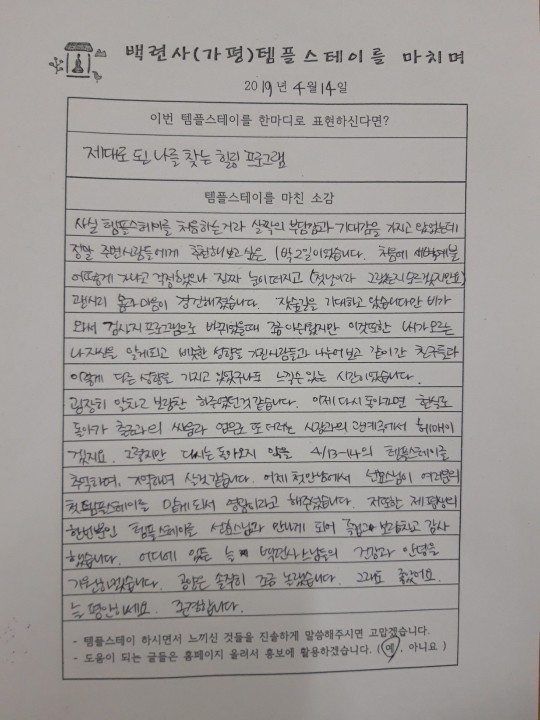 백련사(가평)템플스테이를 마치며
2019년 4월 14일
이번 템플스테이를 한마디로 표현하신다면?
제대로 된 나를 찾는 힐링 프로그램
템플스테이를 마친 소감
사실 템플스테이를 처음하는거라 살짝의 부담감과 기대감을 가지고 있었는데
정말 주변사람들에게 추천해보고 싶은 1박2일이었습니다. 처음에 새벽예불
어떻게 가나고 걱정했으나 진짜 눈이 떠지고 (첫날이라 그랬는지 모르겠지만요)
괜시리 몸과 마음이 경건해졌습니다. 숲길을 기대하고 있었습니다만 비가
와서 검사지 프로그램으로 바뀌었을때 좀 아쉬웠지만 이것또한 내가 모르는
나 자신을 알게되고 비슷한 성향을 가진사람들과 나누어보고 같이간 친구들과
이렇게 다른 성향을 가지고 있었구나도 느낄수 있는 시간이었습니다.
굉장히 알차고 보람찬 하루였던것 같습니다. 이제 다시 돌아가면 현실로
돌아가 싸움과 또 다른 사람과의 관계속에서 헤매이
겠지요. 그렇지만 다시는 돌아오지 않을 4/13-14의 템플스테이를
추억하며, 기억하며 살것같습니다. 어제 첫만남에서 선효스님이 여러분의
첫 템플스테이를 맡게 되서 영광이라고 해주셨습니다. 저또한 제 평생의
한번뿐인 템플스테이를 선효스님과 만나게 되어 즐겁고 보람차고 감사
했습니다. 어디에 있든 늘 백련사스님들의 건강과 안녕을
기원하겠습니다. 공양은 솔직히 조금 놀랬습니다. 그래도 좋았어요.
늘 평안하세요. 존경합니다.
- 템플스테이 하시면서 느끼신 것들을 진솔하게 말씀해주시면 고맙겠습니다.
- 도움이 되는 글들은 홈페이지 올려서 홍보에 활용하겠습니다. ( 예 , 아니요 )